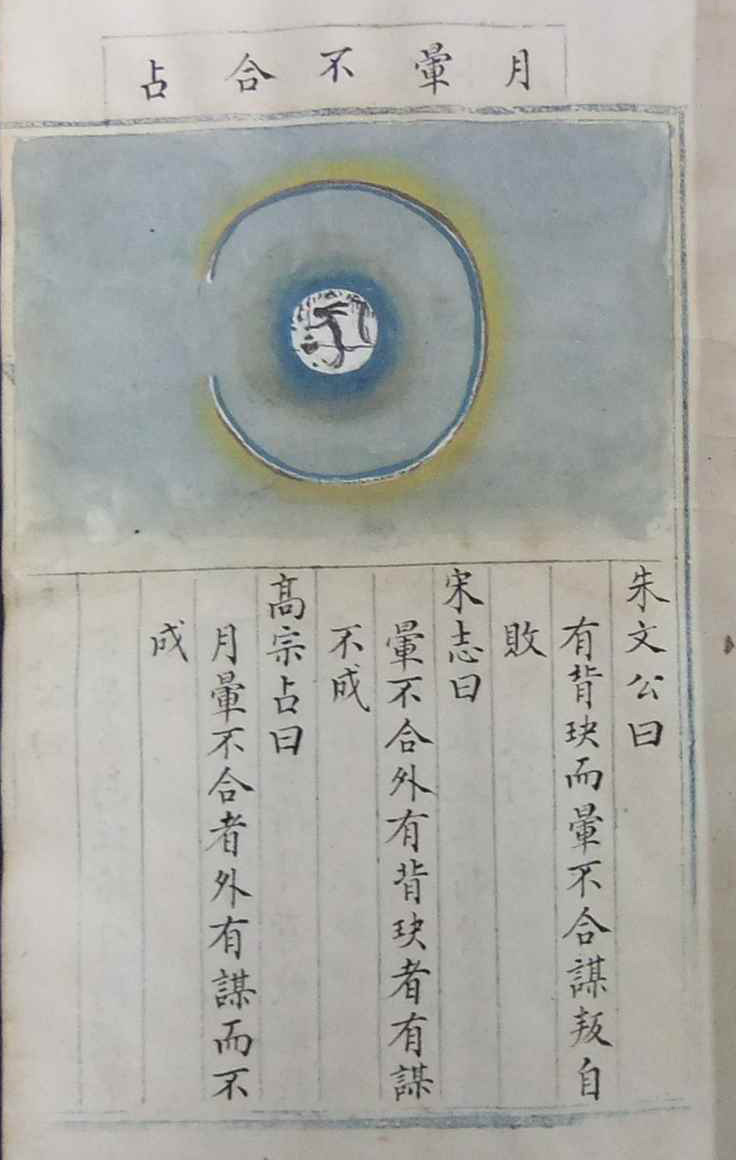 月暈不合占
朱文公曰
有背玦而暈不合謀叛自
敗
宋志曰
暈不合外有背玦者有謀
不成
高宗占曰
月暈不合者外有謀而不
成